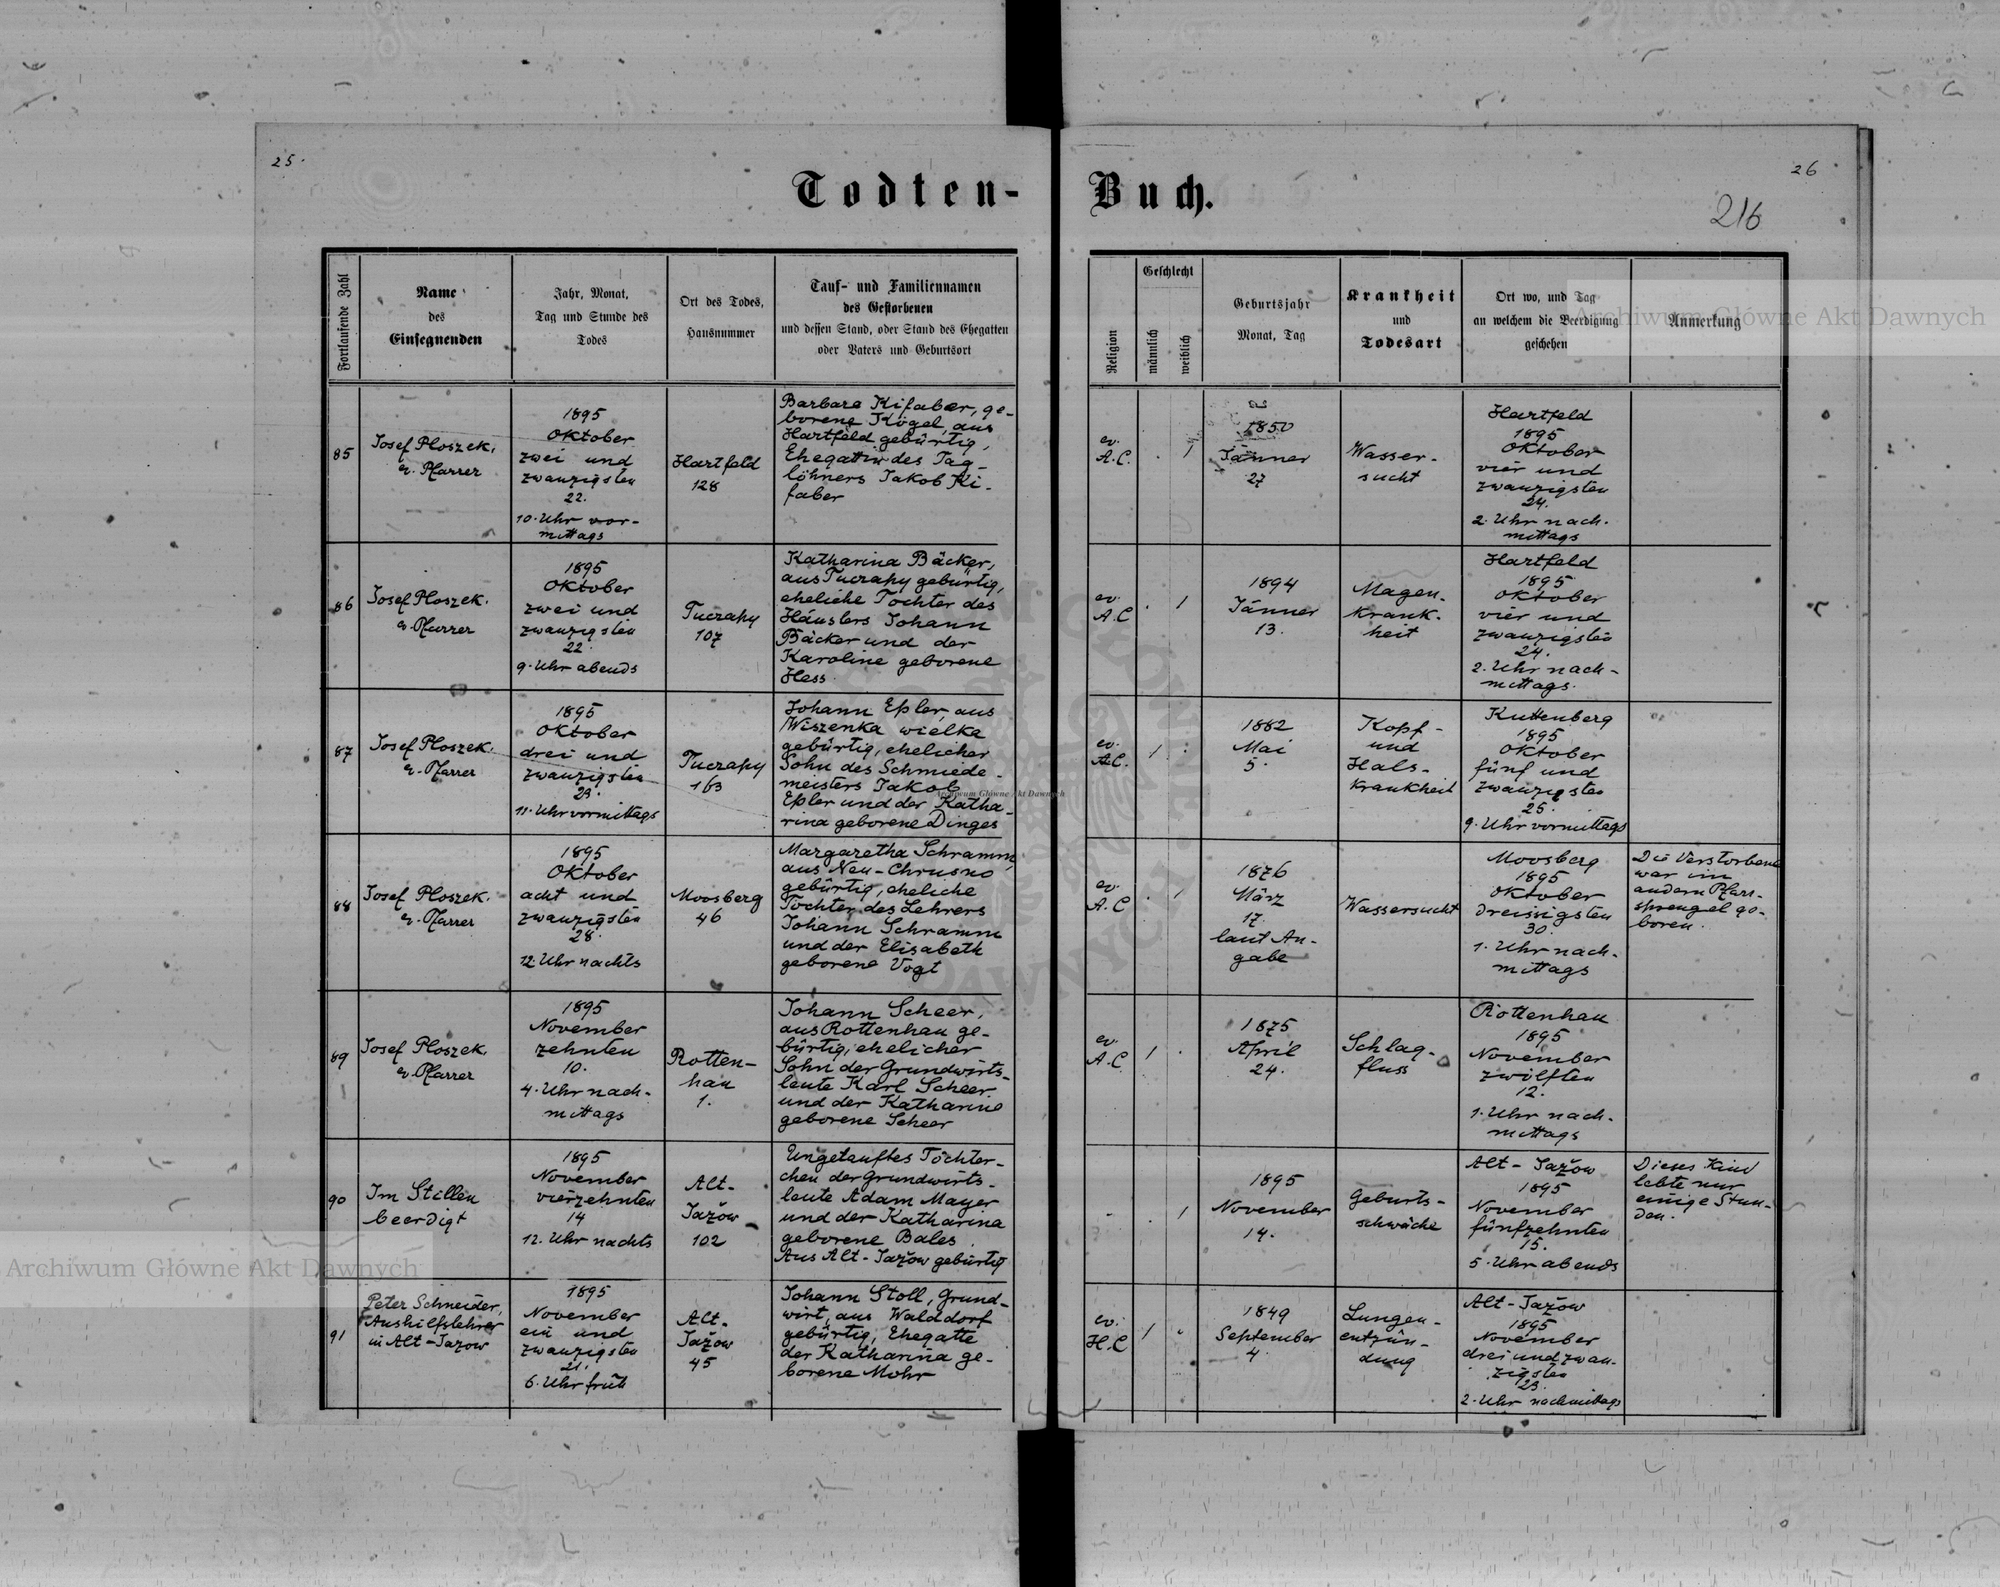 25.
26
216
Todten-Buch.
Fortlaufende Zahl
Name
des
Einsegnenden
Jahr, Monat,
Tag und Stunde des
Todes
Ort des Todes,
Hausnummer
Tauf- und Familiennamen
des Gestorbenen
und dessen Stand, oder Stand des Ehegatten
oder Vaters und Geburtsort
Religion
Geschlecht
männlich
weiblich
Geburtsjahr
Monat, Tag
Krankheit
und
Todesart
Ort wo, und Tag
an welchem die Beerdigung
geschehen
Anmerkung
85
Josef Ploszek.
ev. Pfarrer
1895
Oktober
zwei und
zwanzigsten
22.
10. Uhr vor-
mittags
Hartfeld
128
Barbara Kifaber, ge-
borene Kögel, aus
Hartfeld gebürtig,
Ehegattin des Tag-
löhners Jakob Ki-
faber
ev.
A.C.
. 1
1850
Jänner
27
Wasser-
sucht
Hartfeld
1895
Oktober
vier und
zwanzigsten
24.
2. Uhr nach-
mittags
86
Josef Ploszek.
ev. Pfarrer
1895
Oktober
zwei und
zwanzigsten
22.
9. Uhr abends
Tuczapy
107
Katharina Bäcker,
aus Tuczapy gebürtig,
eheliche Tochter des
Häuslers Johann
Bäcker und der
Karoline geborene
Hess
ev.
A.C
. 1
1894
Jänner
13.
Magen-
krank-
heit
Hartfeld
1895
Oktober
vier und
zwanzigsten
24.
2. Uhr nach-
mittags.
87
Josef Ploszek.
ev. Pfarrer
1895
Oktober
drei und
zwanzigsten
23.
11. Uhr vormittags
Tuczapy
163
Johann Epler, aus
Wiszenka wielka
gebürtig, ehelicher
Sohn des Schmiede-
meisters Jakob
Epler und der Katha-
rina geborene Dinges
ev.
A.C.
1 .
1882
Mai
5.
Kopf-
und
Hals-
krankheit
Kuttenberg
1895
Oktober
fünf und
zwanzigsten
25.
9. Uhr vormittags
88
Josef Ploszek.
ev. Pfarrer
1895
Oktober
acht und
zwanzigsten
28.
12. Uhr nachts
Moosberg
46
Margaretha Schramm,
aus Neu-Chrusno
gebürtig, eheliche
Tochter des Lehrers
Johann Schramm
und der Elisabeth
geborene Vogt
ev.
A.C
. 1
1876
März
17.
laut An-
gabe
Wassersucht
Moosberg
1895
Oktober
dreisigsten
30.
1. Uhr nach-
mittags
Die Verstorbene
war im
andern Pfarr-
sprengel ge-
boren.
89
Josef Ploszek.
ev. Pfarrer
1895
November
zehnten
10.
4. Uhr nach-
mittags
Rotten-
hau
1.
Johann Scheer,
aus Rottenhau ge-
bürtig, ehelicher
Sohn der Grundwirts-
leute Karl Scheer
und der Katharine
geborene Scheer
ev.
A.C.
1 .
1875
April
24.
Schlag-
fluss
Rottenhau
1895
November
zwölften
12.
1. Uhr nach-
mittags
90
Im Stillen
beerdigt
1895
November
vierzehnten
14
12. Uhr nachts
Alt-
Jažow
102
Ungetauftes Töchter-
chen der Grundwirts-
leute Adam Mayer
und der Katharina
geborene Bales.
Aus Alt-Jažow gebürtig
-
. 1
1895
November
14.
Geburts-
schwäche
Alt-Jažow
1895
November
fünfzehnten
15.
5. Uhr abends
Dieses Kind
lebte nur
einige Stun-
den.
91
Peter Schneider,
Aushilfslehrer
in Alt-Jazow
1895
November
ein und
zwanzigsten
21.
6. Uhr früh
Alt-
Jažow
45
Johann Stoll, Grund-
wirt, aus Walddorf
gebürtig, Ehegatte
der Katharina ge-
borene Mohr
ev.
H.C
1 .
1849
September
4.
Lungen-
entzün-
dung
Alt-Jažow
1895
November
drei und zwan-
zigsten
23.
2. Uhr nachmittags
Archiwum Główne Akt Dawnych
Archiwum Główne Akt Dawnych
Archiwum Główne Akt Dawnych